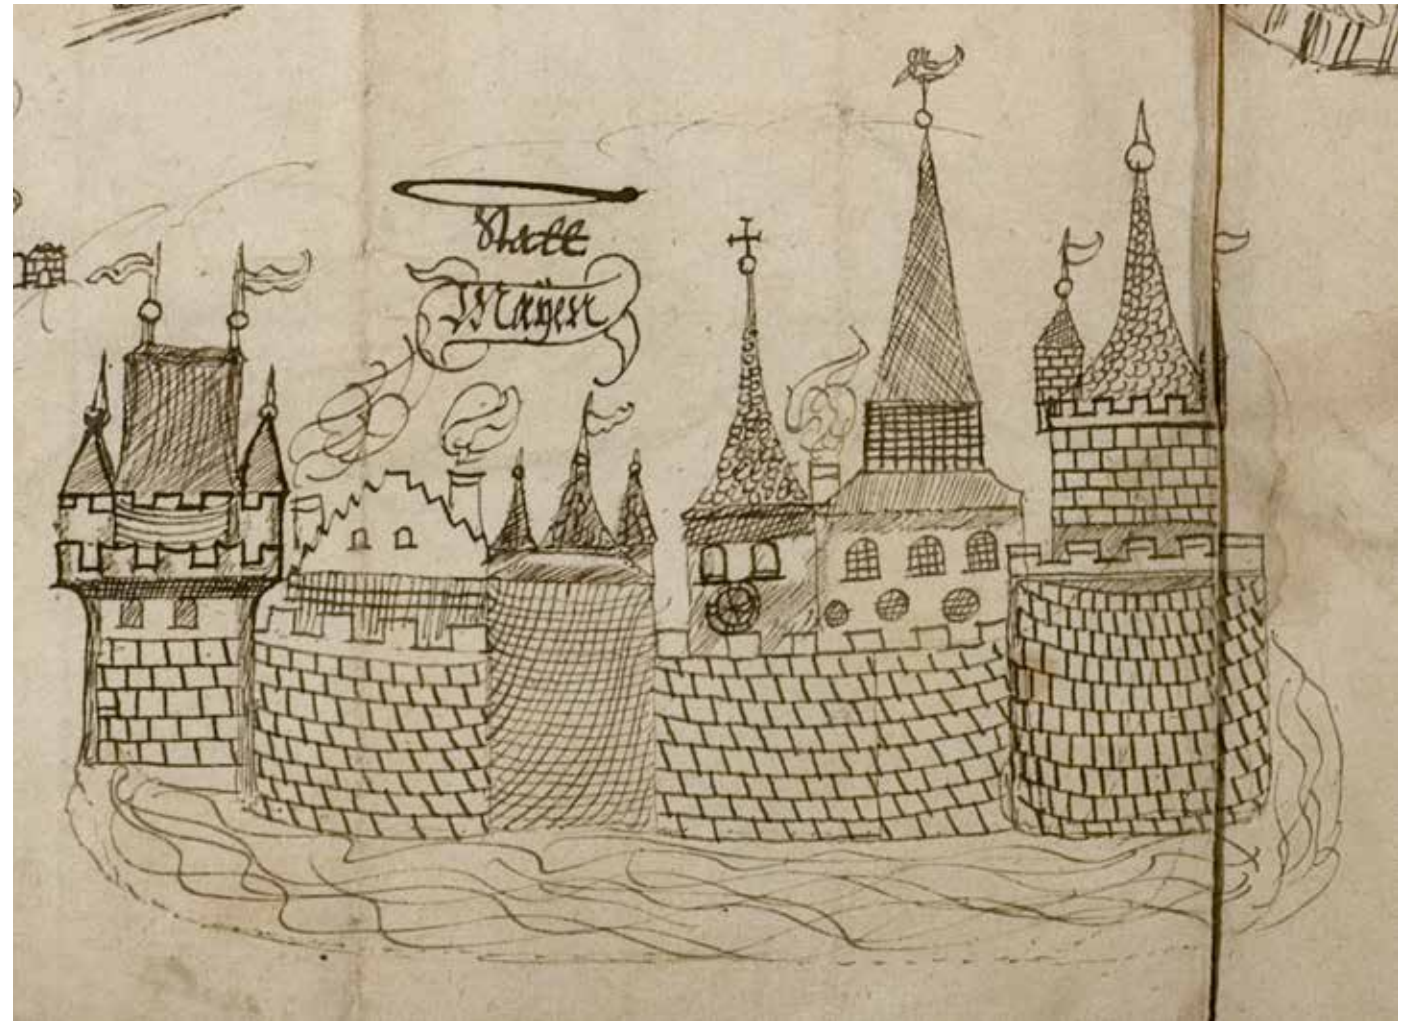 Statt
Mayen